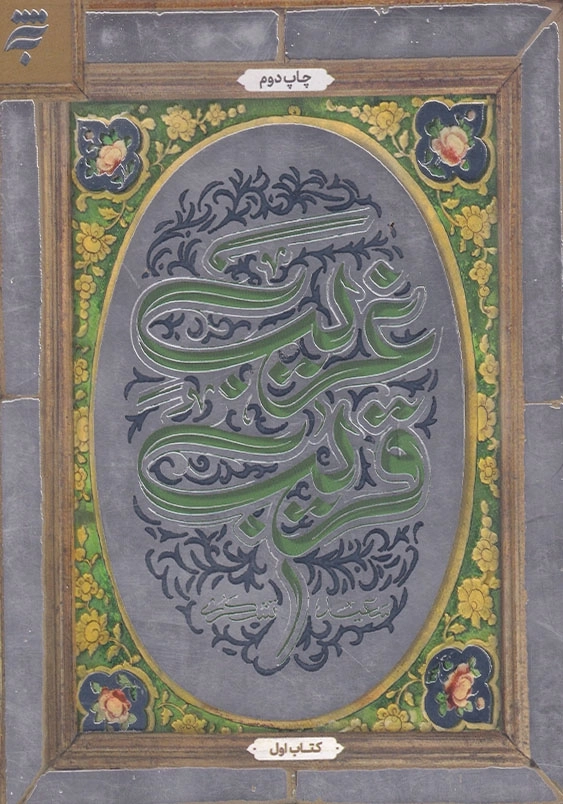 چاپ دوم
غریب
قریب
سعید تشکری
کتاب اول